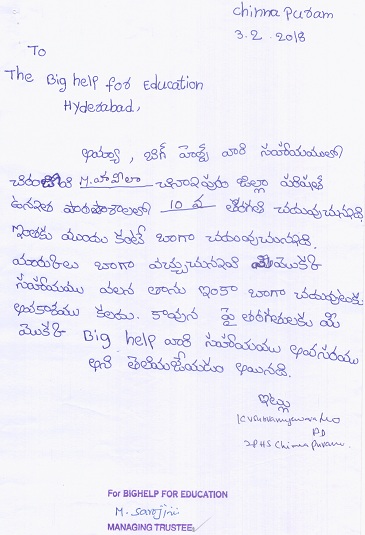 Chinna Puram
3.2.2018
To
The Big help for Education
Hyderabad,
అయ్యా, బిగ్ హెల్ప్ వారి సహాయముతో
చిరంజీవి M. చినాపురం జిల్లా పరిషత్
ఉన్నత పాఠశాలలో 10 వ తరగతి చదువుచున్నది.
ఇంతకు ముందు కంటే బాగా చదువుచున్నది.
మార్కులు బాగా వచ్చుచున్నవి మీయొక్క
సహాయము వలన తాను ఇంకా బాగా చదువుటకు
అవకాశము కలదు. కావున పై తరగతులకు మీ
యొక్క Big help వారి సహాయము అవసరము
అని తెలియజేయడం అయినది.
ఇట్లు
ZPHS Chinnapuram.
For BIGHELP FOR EDUCATION
M. Sarojini
MANAGING TRUSTEE